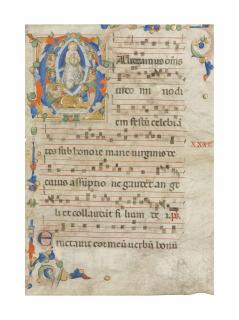 Audeamus om̃s
in do mi no di
em festū celebrā
tes sub honore marie virginis de
cuius assūptio ne gaudēt an ge
li et collaudāt fi lium de i. ps.
Eructauit cor meū uerbū bonū